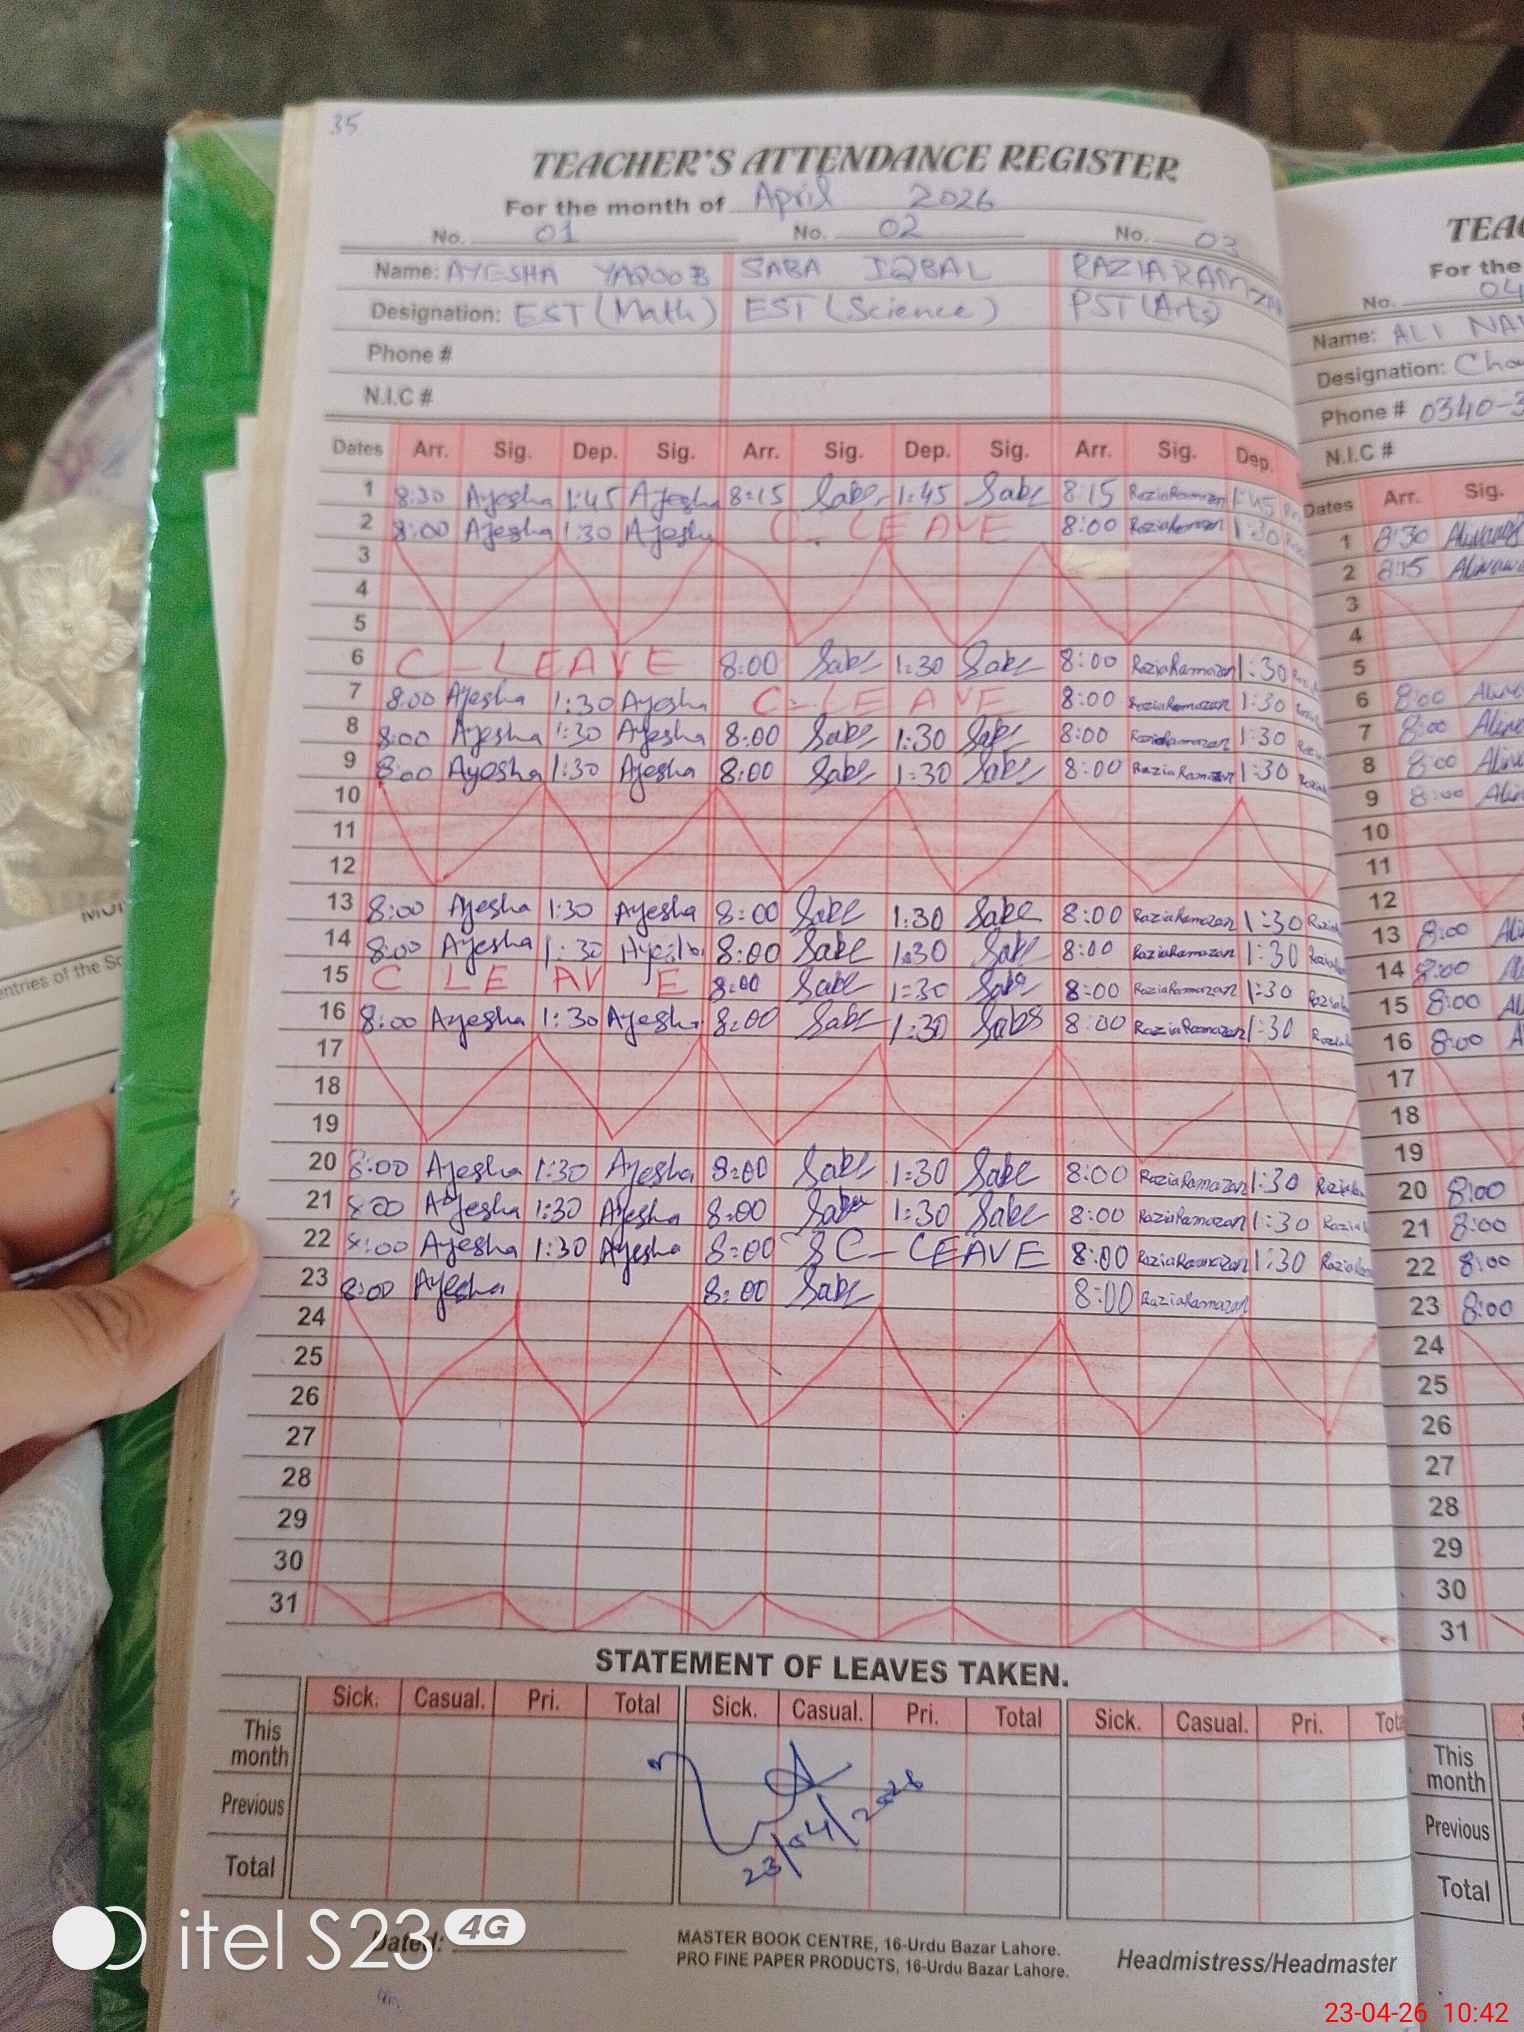 35
TEACHER'S ATTENDANCE REGISTER
For the month of April 2026
No. 01 No. 02 No. 03
Name: AYESHA YAQOOB SABA IQBAL RAZIA RAMZAN
Designation: EST (Math) EST (Science) PST (Arts)
Phone #
N.I.C #
Dates Arr. Sig. Dep. Sig. Arr. Sig. Dep. Sig. Arr. Sig. Dep.
1 8:30 Ayesha 1:45 Ayesha 8:15 Saba 1:45 Saba 8:15 Razia Ramazan 1:45
2 8:00 Ayesha 1:30 Ayesha C-LEAVE 8:00 Razia Ramazan 1:30
3
4
5
6 C-LEAVE 8:00 Saba 1:30 Saba 8:00 Razia Ramazan 1:30
7 8:00 Ayesha 1:30 Ayesha C-LEAVE 8:00 Razia Ramazan 1:30
8 8:00 Ayesha 1:30 Ayesha 8:00 Saba 1:30 Saba 8:00 Razia Ramazan 1:30
9 8:00 Ayesha 1:30 Ayesha 8:00 Saba 1:30 Saba 8:00 Razia Ramazan 1:30
10
11
12
13 8:00 Ayesha 1:30 Ayesha 8:00 Saba 1:30 Saba 8:00 Razia Ramazan 1:30
14 8:00 Ayesha 1:30 8:00 Saba 1:30 Saba 8:00 Razia Ramazan 1:30
15 C LEAVE 8:00 Saba 1:30 Saba 8:00 Razia Ramazan 1:30
16 8:00 Ayesha 1:30 Ayesha 8:00 Saba 1:30 Saba 8:00 Razia Ramazan 1:30
17
18
19
20 8:00 Ayesha 1:30 Ayesha 8:00 Saba 1:30 Saba 8:00 Razia Ramazan 1:30
21 8:00 Ayesha 1:30 Ayesha 8:00 Saba 1:30 Saba 8:00 Razia Ramazan 1:30
22 8:00 Ayesha 1:30 Ayesha 8:00 C-LEAVE 8:00 Razia Ramazan 1:30
23 8:00 Ayesha 8:00 Saba 8:00 Razia Ramazan
24
25
26
27
28
29
30
31
STATEMENT OF LEAVES TAKEN.
Sick. Casual. Pri. Total Sick. Casual. Pri. Total Sick. Casual. Pri.
This month
Previous
Total
23/04/2026
Dated:
MASTER BOOK CENTRE, 16-Urdu Bazar Lahore.
PRO FINE PAPER PRODUCTS, 16-Urdu Bazar Lahore.
Headmistress/Headmaster
For the
No. 04
Name: ALI
Designation:
Phone # 0340-3
N.I.C #
Dates Arr. Sig.
1 8:30
2 8:15
3
4
5
6 8:00
7 8:00
8 8:00
9 8:00
10
11
12
13 8:00
14 8:00
15 8:00
16 8:00
17
18
19
20 8:00
21 8:00
22 8:00
23 8:00
24
25
26
27
28
29
30
31
This month
Previous
Total
itel S23 4G
23-04-26 10:42